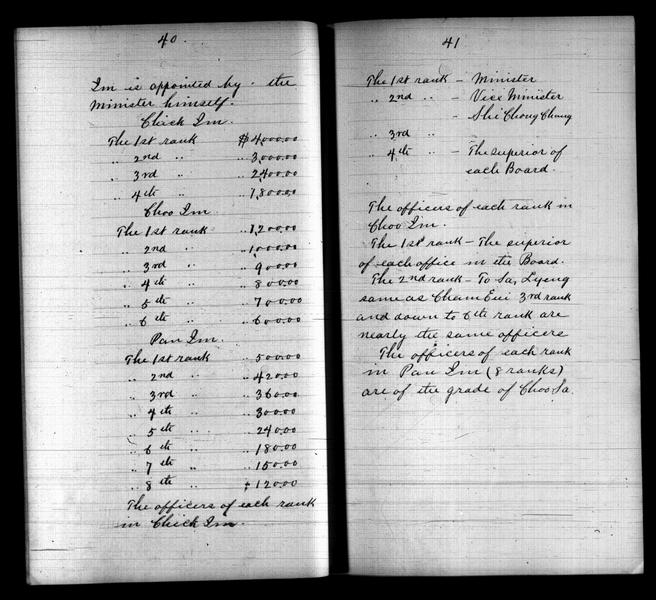 40.
Im is appointed by the
Minister himself.
Chick Im.
The 1st rank $4,000.00
„ 2nd „ „ 3,000.00
„ 3rd „ „ 2,400.00
„ 4th „ „ 1,800.00
Choo Im.
The 1st rank „ 1,200.00
„ 2nd „ „ 1,000.00
„ 3rd „ „ 900.00
„ 4th „ „ 800.00
„ 5th „ „ 700.00
„ 6th „ „ 600.00
Pan Im.
The 1st rank „ 500.00
„ 2nd „ „ 420.00
„ 3rd „ „ 360.00
„ 4th „ „ 300.00
„ 5th „ „ 240.00
„ 6th „ „ 180.00
„ 7th „ „ 150.00
„ 8th „ $ 120.00
The officers of each rank
in Chick Im.
41
The 1st rank – Minister
„ 2nd „ – Vice Minister
– Shi Chong Chong
„ 3rd „
„ 4th „ – The superior of
each Board.
The officers of each rank in
Choo Im.
The 1st rank – The superior
of each office in the Board.
The 2nd rank – To Sa, Lyeng
same as Cham Eui 3rd rank
and down to 6th rank are
nearly the same officers
The officers of each rank
in Pan Im (8 ranks)
are of the grade of Choo Sa.